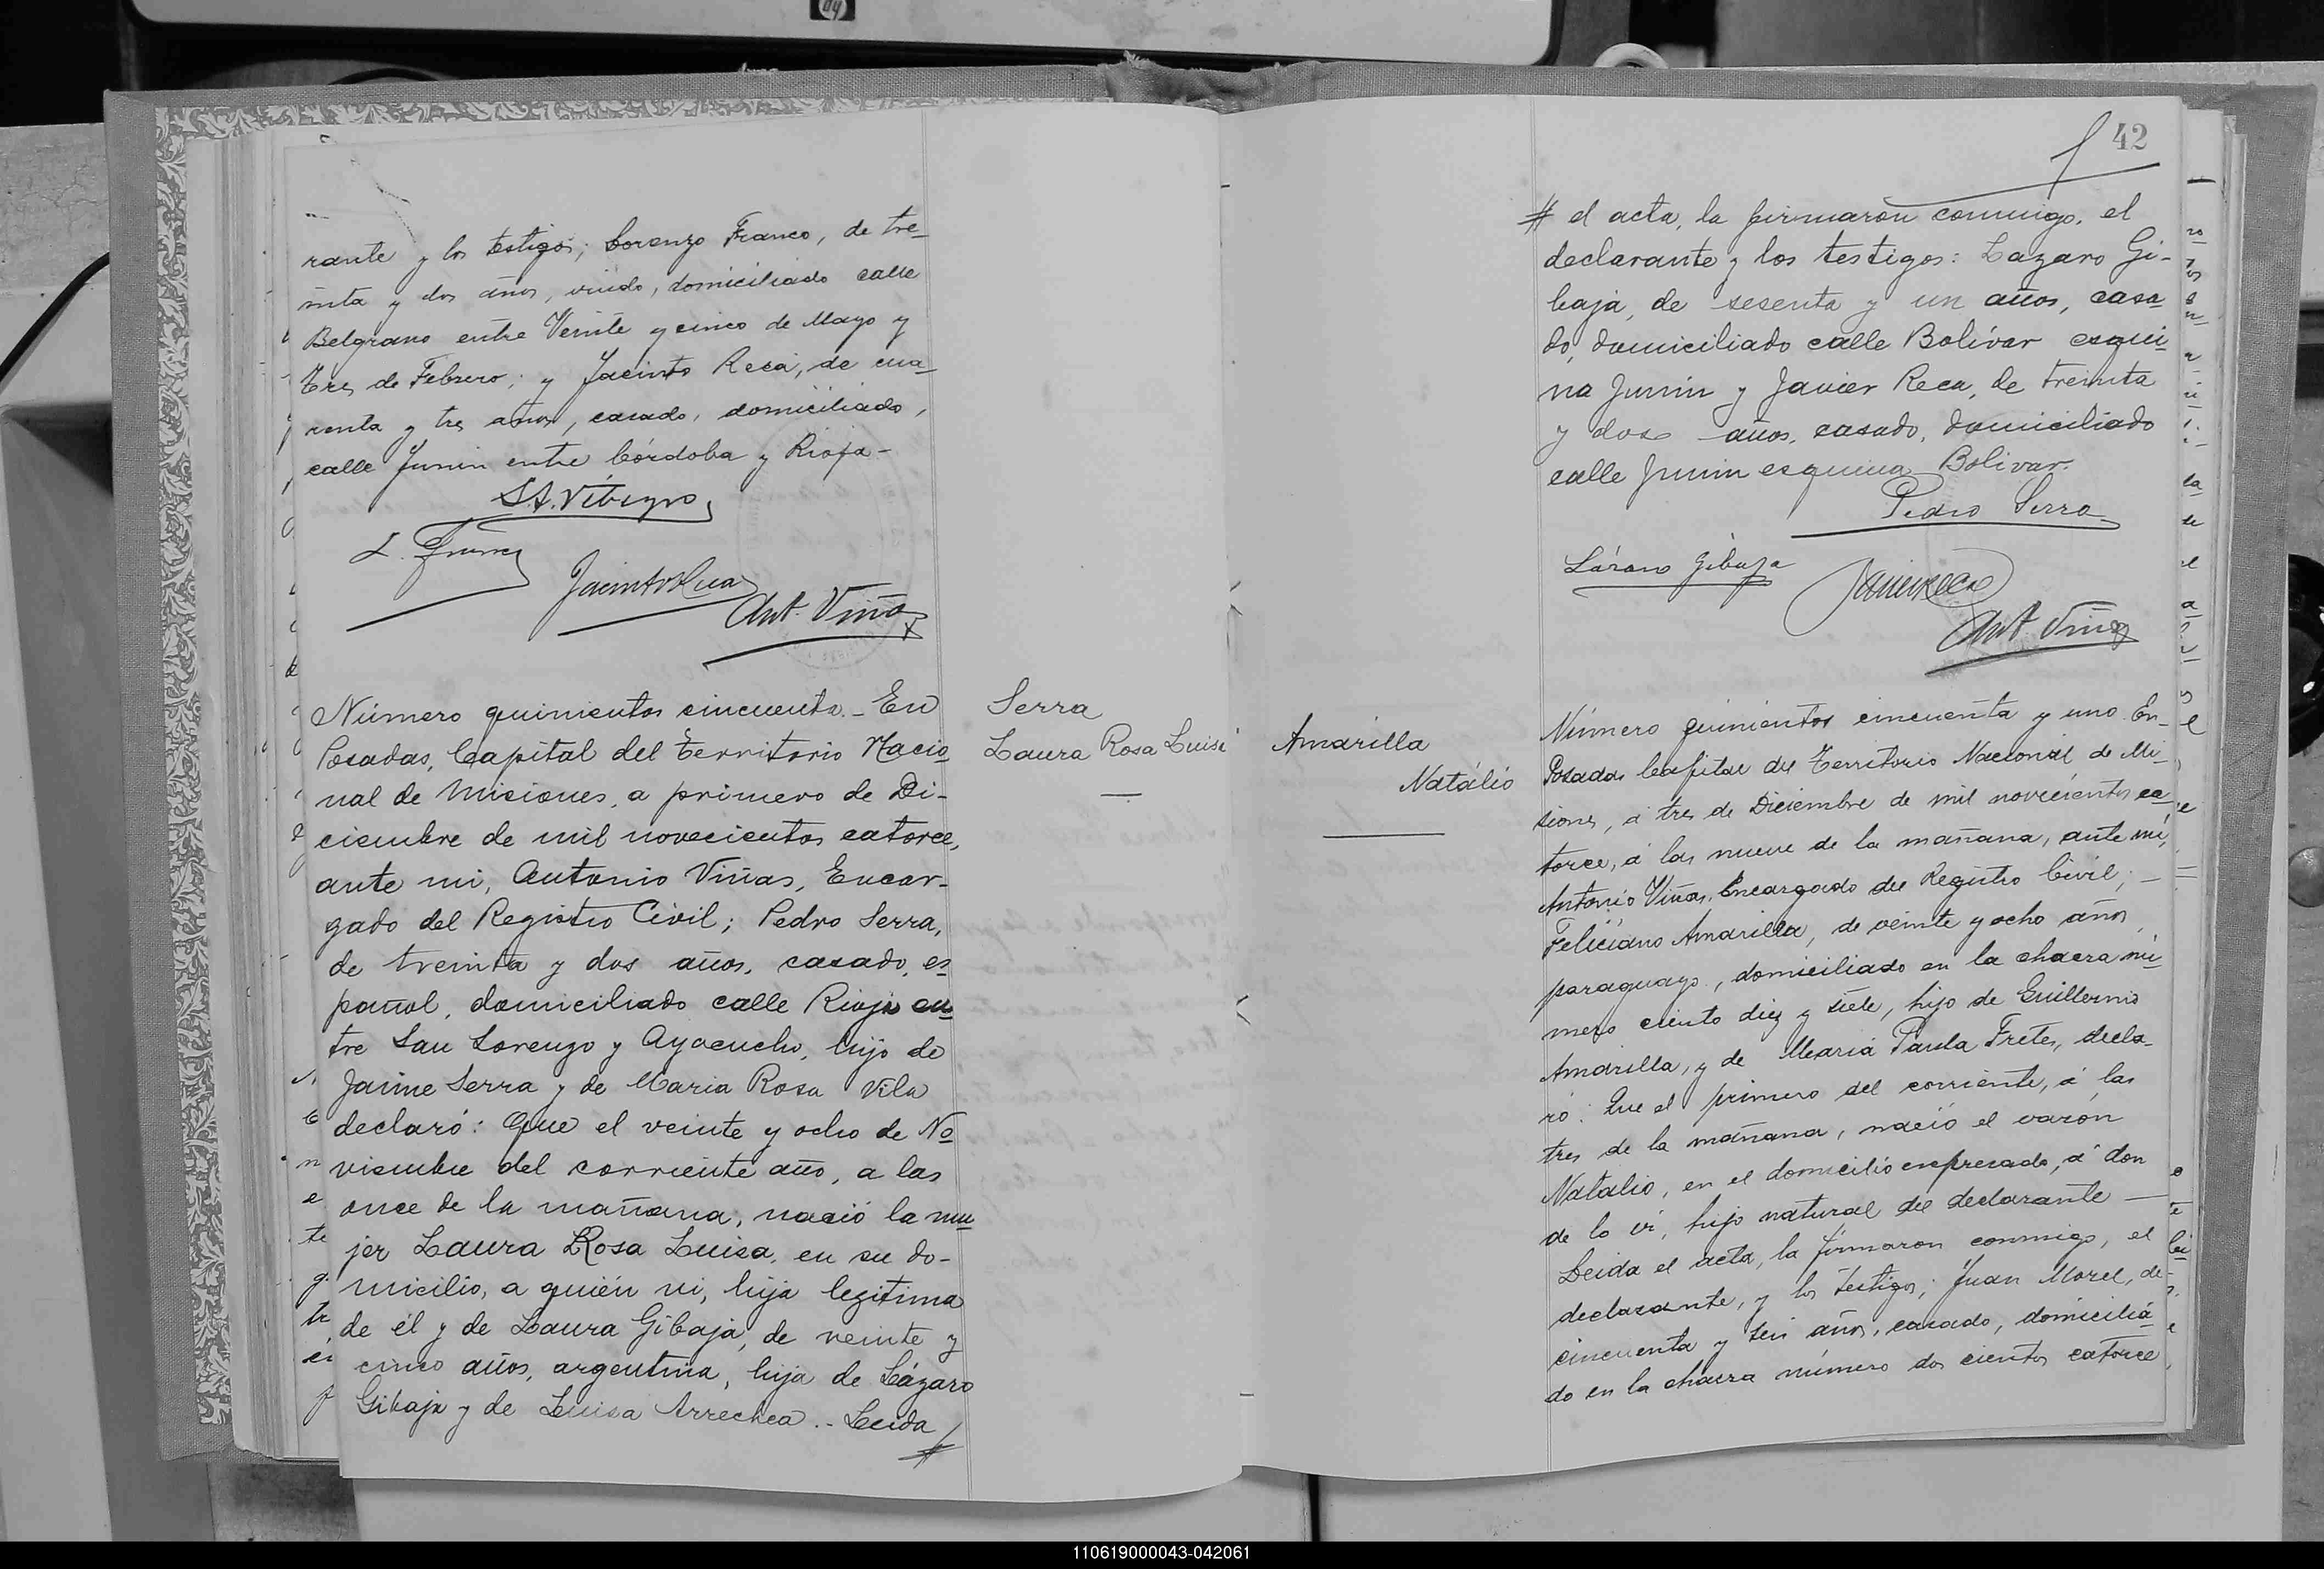 hp
rante y los testigos; Lorenzo Franco, de tre-
inta y dos años, viudo, domiciliado calle
Belgrano entre Veinte y cinco de Mayo y
Tres de Febrero; y Jacinto Reca, de cua-
renta y tres años, casado, domiciliado,
calle Junin entre Córdoba y Rioja-
Jacinto Reca
Ant. Viñas
Número quinientos cincuenta.- En
Posadas, Capital del Territorio Nacio-
nal de Misiones, a primero de Di-
ciembre de mil novecientos catorce,
ante mi, Antonio Viñas, Encar-
gado del Registro Civil; Pedro Serra,
de treinta y dos años, casado, es-
pañol, domiciliado calle Rioja en-
tre San Lorenzo y Ayacucho, hijo de
Jaime Serra y de Maria Rosa Vila
declaró: Que el veinte y ocho de No-
viembre del corriente año, a las
once de la mañana, nació la mu-
jer Laura Rosa Luisa, en su do-
micilio, a quién vi, hija legitima
de él y de Laura Gibaja, de veinte y
cinco años, argentina, hija de Lázaro
Gibaja y de Luisa Arrechea.- Leida
#
Serra
Laura Rosa Luisa
42
# el acta, la firmaron conmigo, el
declarante y los testigos: Lazaro Gi-
baja, de sesenta y un años, casa-
do, domiciliado calle Bolívar esqui-
na Junin y Javier Reca, de treinta
y dos años, casado, domiciliado
calle Junin esquina Bolivar.
Pedro Serra
Lázaro Gibaja
Javier Reca
Ant. Viñas
Amarilla
Natálio
Número quinientos cincuenta y uno. En-
Posadas Capital del Territorio Nacional de Mi-
siones, á tres de Diciembre de mil novecientos ca-
torce, á las nueve de la mañana, ante mi,
Antonio Viñas, Encargado del Registro Civil; -
Feliciano Amarilla, de veinte y ocho años,
paraguayo, domiciliado en la chacra nú-
mero ciento diez y siete, hijo de Guillermo
Amarilla, y de Maria Paula Fretes, decla-
ró: Que el primero del corriente, á las
tres de la mañana, nació el varón
Natalio, en el domicilio expresado, á don
de lo ví, hijo natural del declarante —
Leida el acta, la firmaron conmigo, el
declarante, y los testigos; Juan Morel, de-
cincuenta y seis años, casado, domicilia-
do en la chacra número dos cientos catorce
110619000043-042061